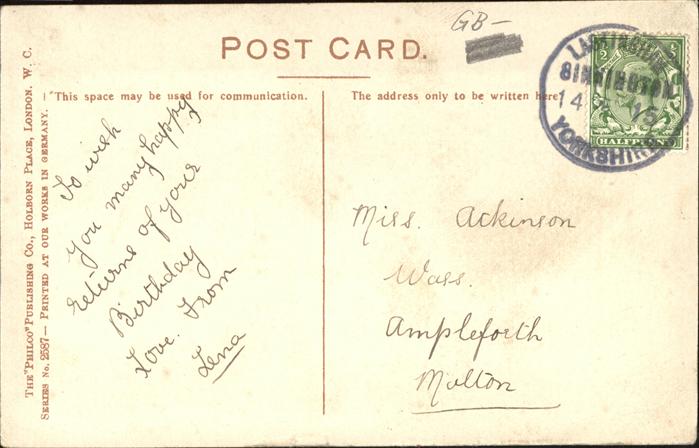 GB-
POST CARD.
"This space may be used for communication.
The address only to be written here.
THE "PHILCO" PUBLISHING CO., HOLBORN PLACE, LONDON. W. C.
SERIES No. 2587 — PRINTED AT OUR WORKS IN GERMANY.
To wish
you many happy
returns of your
Birthday
Love. From
Lena
Miss. Ackinson
Wass.
Ampleforth
Malton
SINNINGTON
14 15
YORKSHIRE
HALFPENNY